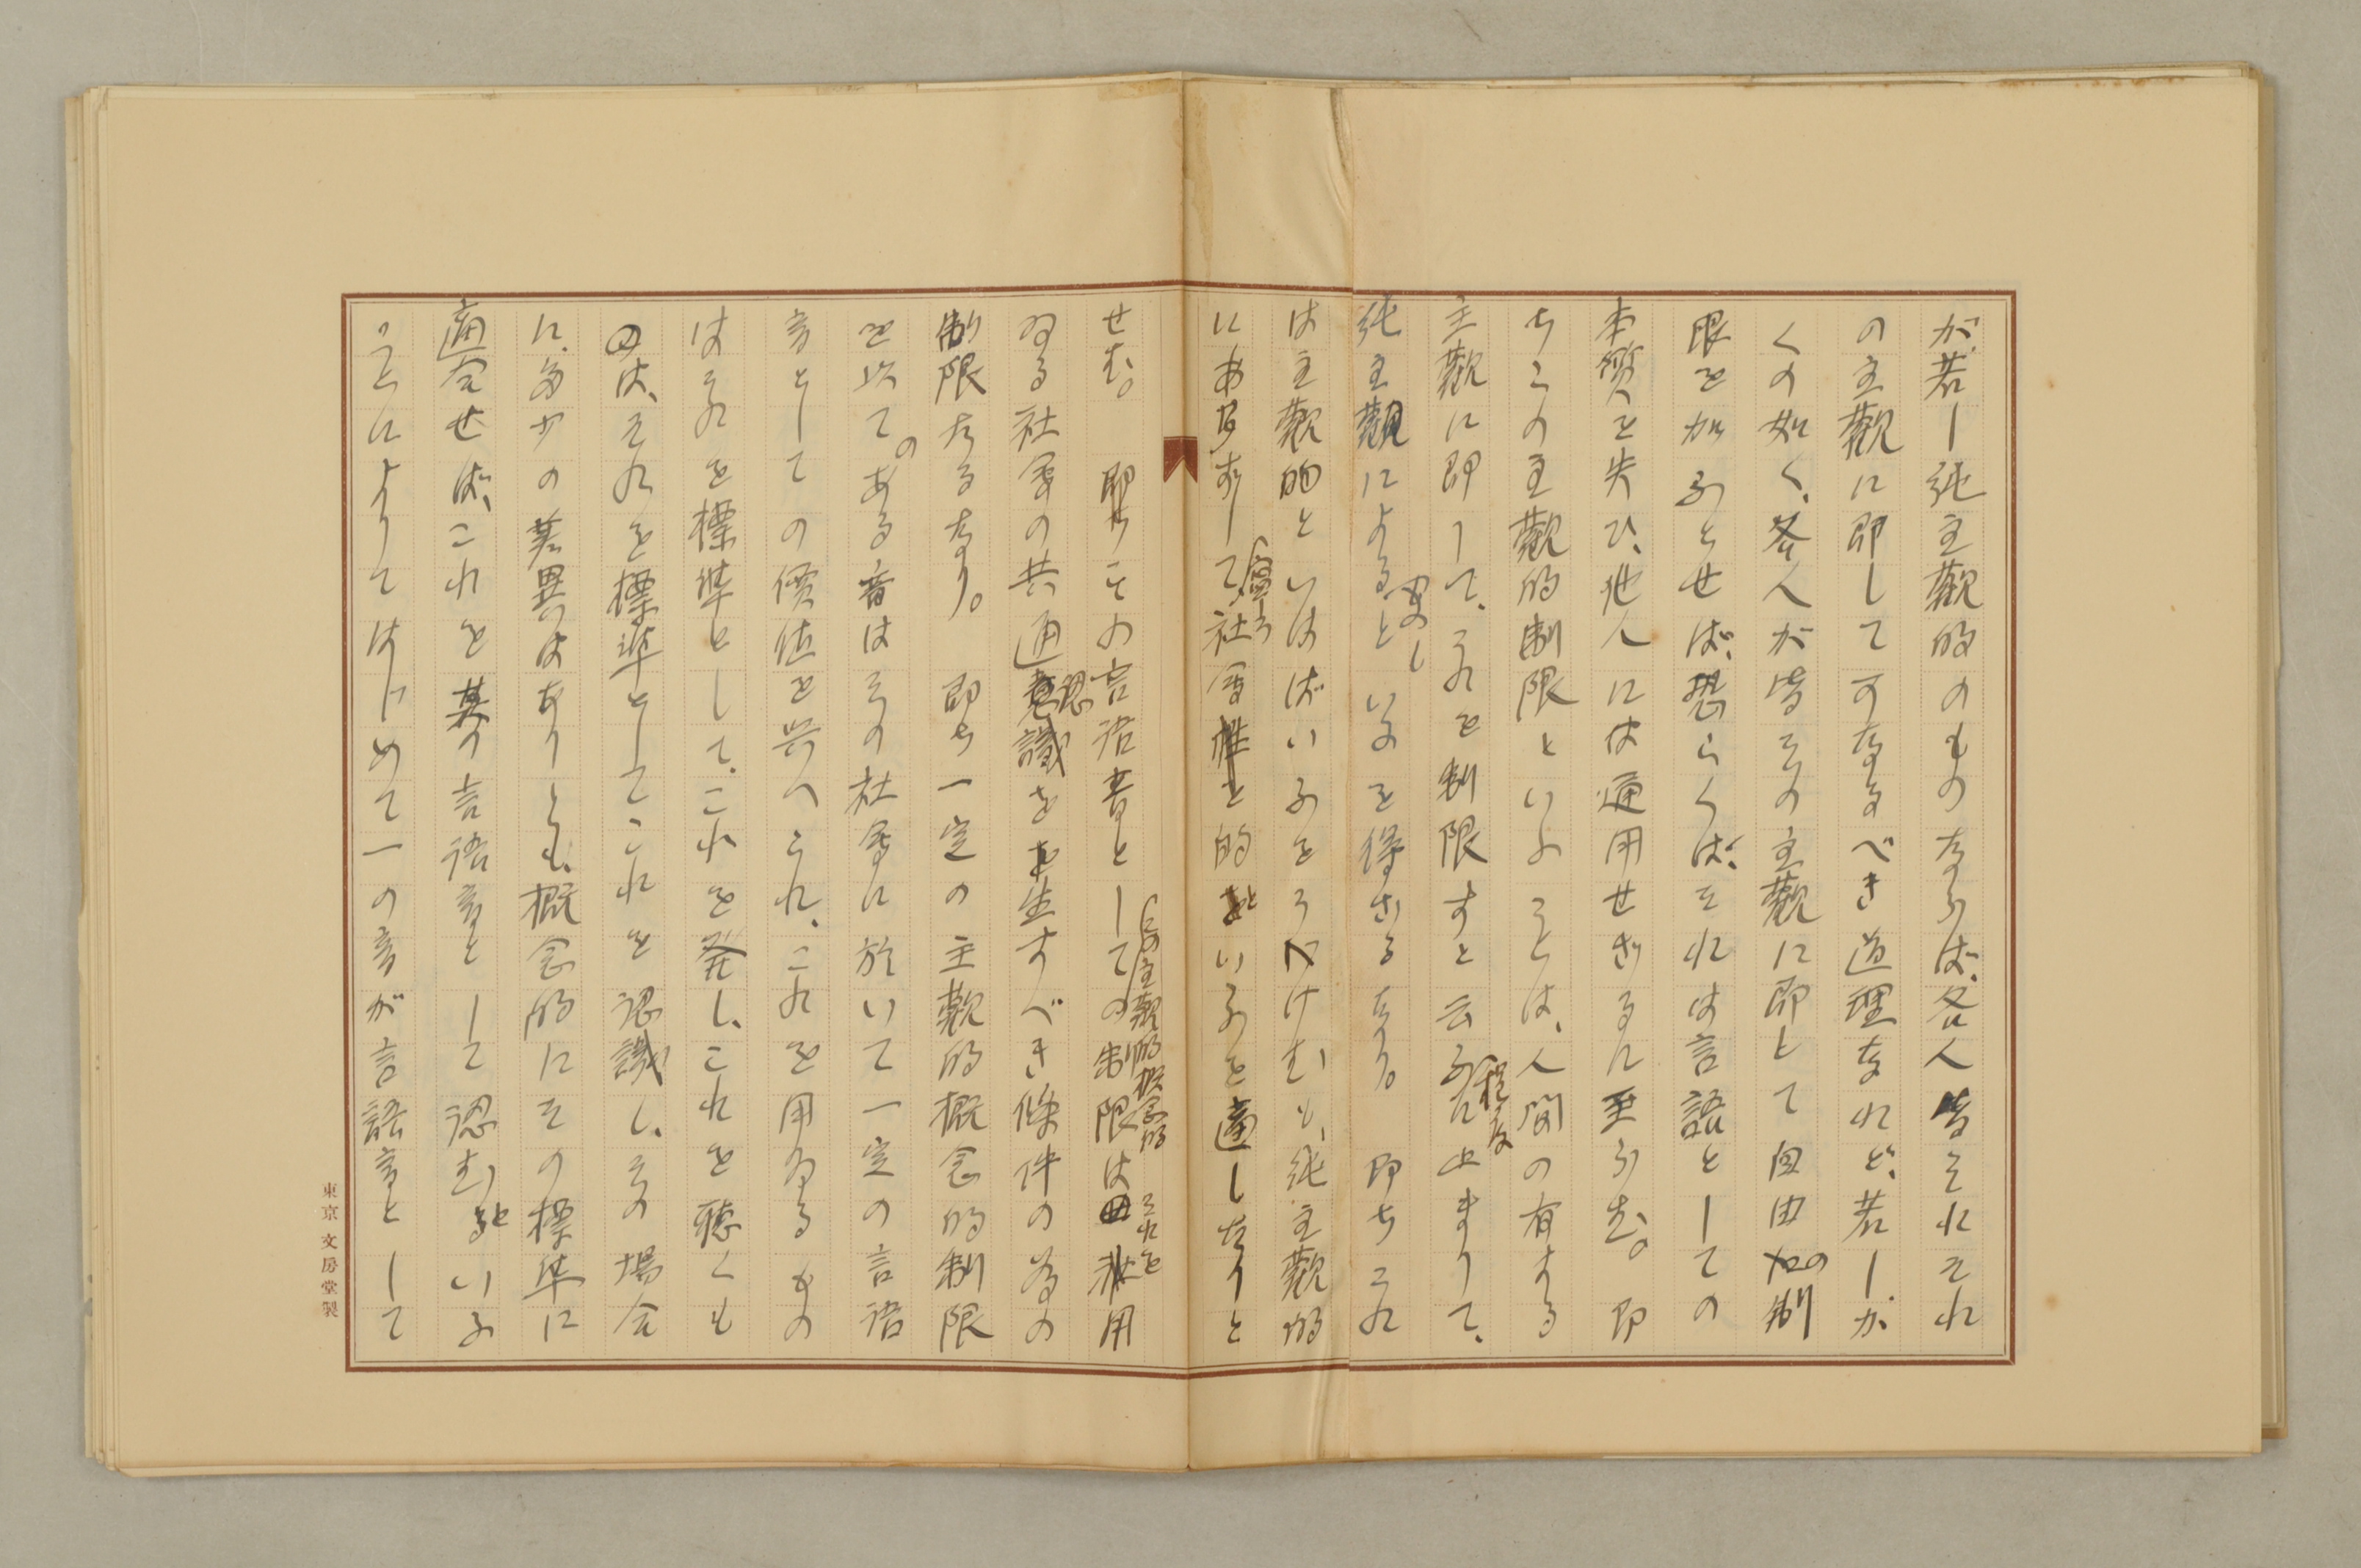 が、若し純主觀的のものならば、各人皆それそれ
の主觀に即して可なるべき道理なれど、若しか
くの如く、各人が皆その主觀に即して自由の制
限を加ふとせば、恐らくば、それは言語としての
本質を失ひ、他人には通用せざるに至らむ。即
ちこの主觀的制限といふことは、人間の有する
主觀に即して、これを制限すと云ふ程度に止まりて、
純主觀によると
いふを得ざるなり。即ちこれ
は主觀的といはばいふをうべけむも、純主觀的
にあらずして、寧ろ社會的といふを適しなりと
せむ。即ちその言語音としての制限は
この主觀的概念的
それを
用
ゐる社會の共通認識を生すべき條件の為の
制限なるなり。即ち一定の主觀的概念的制限
を以ての
ある音はその社會に於いて一定の言語
音としての價値を与へられ、これを用ゐるもの
はこれを標準として、これを発し、これを聴くも
のは、それを標準としてこれを認識し、その場合
に多少の差異はありとも、概念的にその標準に
適合せば、これを某の言語音として認むといふ
ことによりてはじめて一の音が言語音として
東京 文房堂製